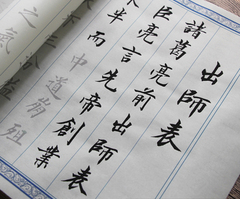 出師表
諸葛亮前出師表
臣亮言先帝創業
未半而中道崩殂
三分
之氣